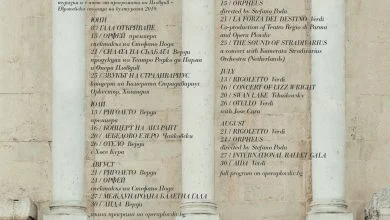 Европейска столица на културата 2019.
ЮНИ
07 ГАЛА ОТКРИВАНЕ
15 / ОРФЕЙ премиера
спектакъл на Стефано Пода
21 / СИЛАТА НА СЪДБАТА Верди
продукция на Театро Реджо ди Парма
и Опера Пловдив
25 / ЗВУКЪТ НА СТРАДИВАРИУС
концерт на Камерата Страдивариус
Оркестър, Холандия
ЮЛИ
13 / РИГОЛЕТО Верди
премиера
16 / КОНЦЕРТ НА ЛИЗ РАЙТ
20 / ЛЕБЕДОВО ЕЗЕРО Чайковски
26 / ОТЕЛО Верди
с Хосе Кура
АВГУСТ
21 / РИГОЛЕТО Верди
24 / ОРФЕЙ
спектакъл на Стефано Пода
27 / МЕЖДУНАРОДНА БАЛЕТНА ГАЛА
30 / АИДА Верди
пълна програма на operaplovdiv.bg
15 / ORPHEUS
directed by Stefano Poda
21 / LA FORZA DEL DESTINO Verdi
Co-production of Teatro Regio di Parma
and Opera Plovdiv
25 / THE SOUND OF STRADIVARIUS
a concert with Kamerata Stradivarius
Orchestra (Netherlands)
JULY
13 / RIGOLETTO Verdi
16 / CONCERT OF LIZZ WRIGHT
20 / SWAN LAKE Tchaikovsky
26 / OTELLO Verdi
with Jose Cura
AUGUST
21 / RIGOLETTO Verdi
24 / ORPHEUS
directed by Stefano Poda
27 / INTERNATIONAL BALLET GALA
30 / AIDA Verdi
full program on operaplovdiv.bg